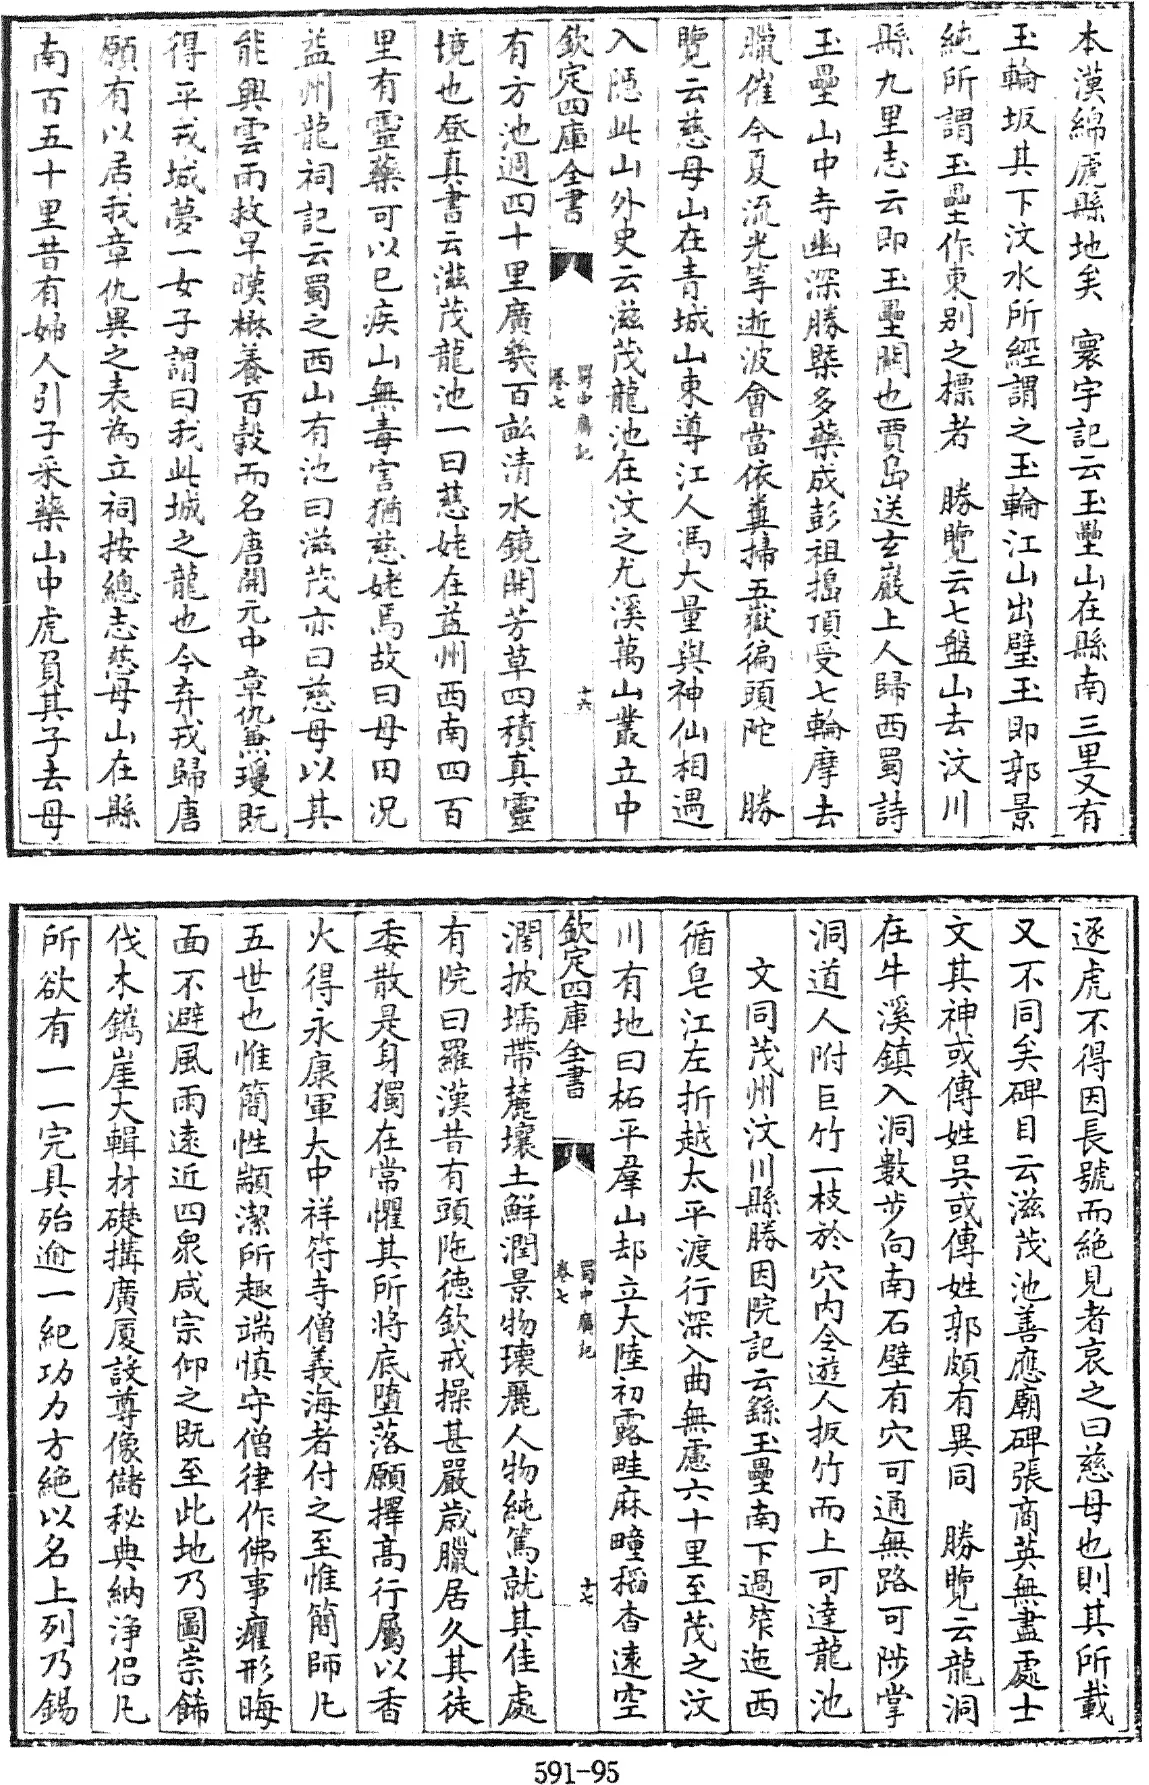 本漢綿虒縣地矣　寰宇記云玉壘山在縣南三里又有
玉輪坂其下汶水所經謂之玉輪江山出璧玉即郭景
純所謂玉壘作東别之標者　勝覽云七盤山去汶川
縣九里志云即玉壘關也賈島送玄巖上人歸西蜀詩
玉壘山中寺幽深勝槩多藥成彭祖擣頂受七輪摩去
臘催今夏流光等逝波會當依糞掃五嶽徧頭陀　勝
覽云慈母山在青城山東導江人馮大量與神仙相遇
入隱此山外史云滋茂龍池在汶之尤溪萬山叢立中
欽定四庫全書
蜀中廣記
卷七
十六
有方池週四十里廣幾百畝清水鏡開芳草四積真靈
境也登真書云滋茂龍池一曰慈姥在益州西南四百
里有靈藥可以已疾山無毒害猶慈姥焉故曰母田况
益州龍祠記云蜀之西山有池曰滋茂亦曰慈母以其
能興雲雨救旱暵楙養百穀而名唐開元中章仇兼瓊既
得平戎城夢一女子謂曰我此城之龍也今弃戎歸唐
願有以居我章仇異之表為立祠按總志慈母山在縣
南百五十里昔有婦人引子采藥山中虎負其子去母
逐虎不得因長號而絶見者哀之曰慈母也則其所載
又不同矣碑目云滋茂池善應廟碑張商英無盡處士
文其神或傳姓吳或傳姓郭頗有異同　勝覽云龍洞
在牛溪鎮入洞數步向南石壁有穴可通無路可陟掌
洞道人附巨竹一枝於穴内令遊人扳竹而上可達龍池
文同茂州汶川縣勝因院記云繇玉壘南下過笮迤西
循皂江左折越太平渡行深入曲無慮六十里至茂之汶
川有地曰柘平羣山却立大陸初露畦麻疃稻杳遠空
欽定四庫全書
蜀中廣記
卷七
十七
濶披壖帶麓壤土鮮潤景物瓌麗人物純篤就其佳處
有院曰羅漢昔有頭陁德欽戒操甚嚴歲臘居久其徒
委散是身獨在常懼其所將底墮落願擇高行屬以香
火得永康軍大中祥符寺僧義海者付之至惟簡師凡
五世也惟簡性顓潔所趣端慎守僧律作佛事癯形晦
面不避風雨遠近四衆咸宗仰之既至此地乃圖崇飾
伐木鐫崖大輯材礎搆廣厦設尊像儲秘典納淨侣凡
所欲有一一完具殆逾一紀功力方絶以名上列乃錫
591-95